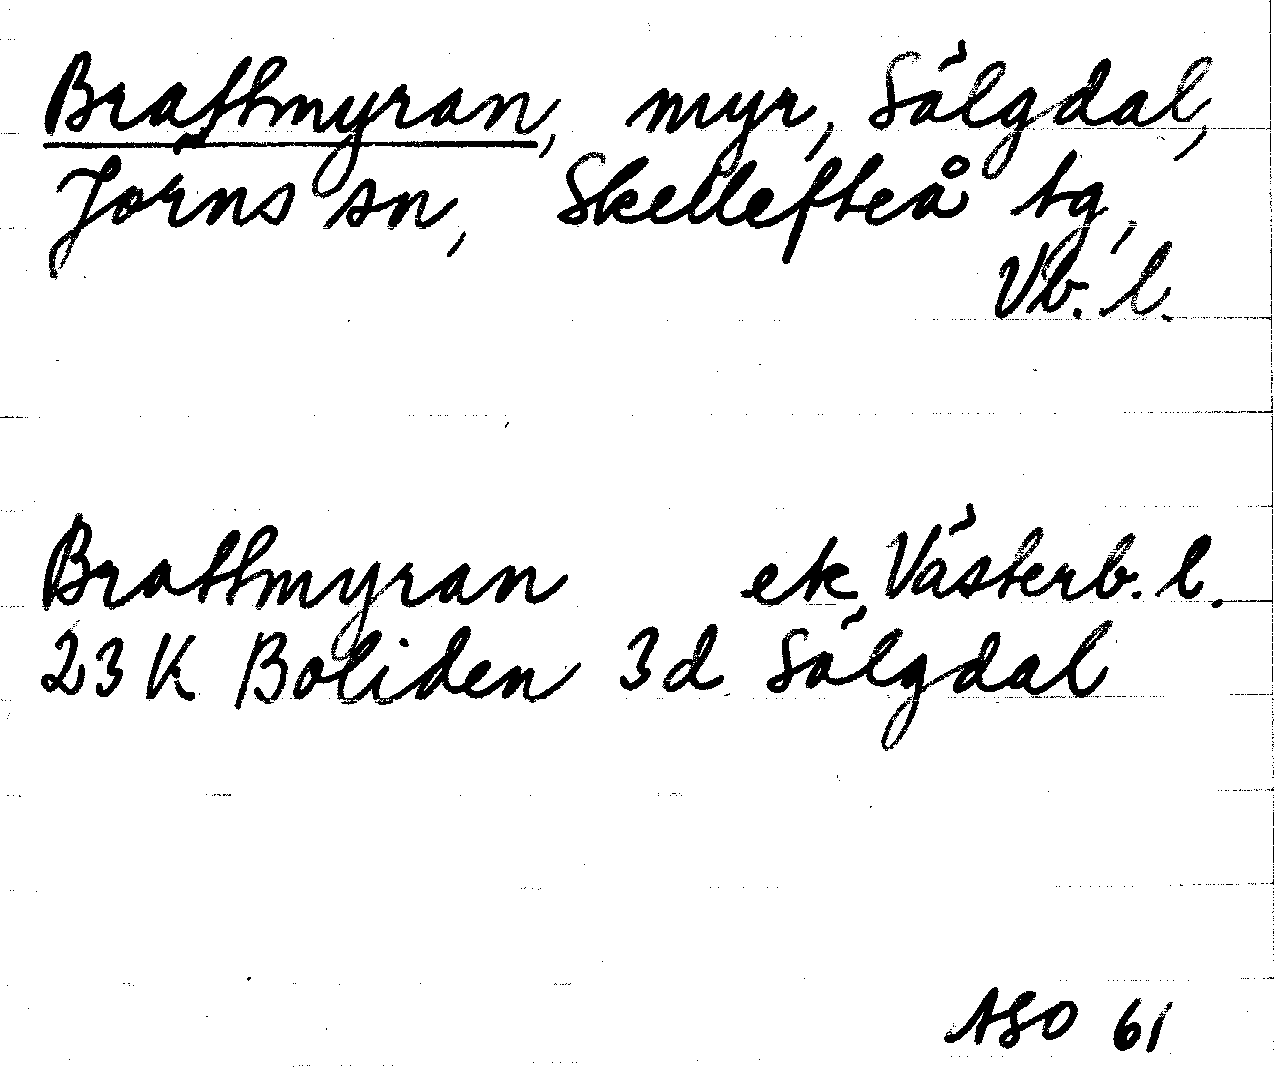 Brattmyran, myr, Sälgdal,
Jörns sn, Skellefteå tg,
Vb. l.
Brattmyran ek Västerb. l.
23 K Boliden 3d Sälgdal
ASO 61